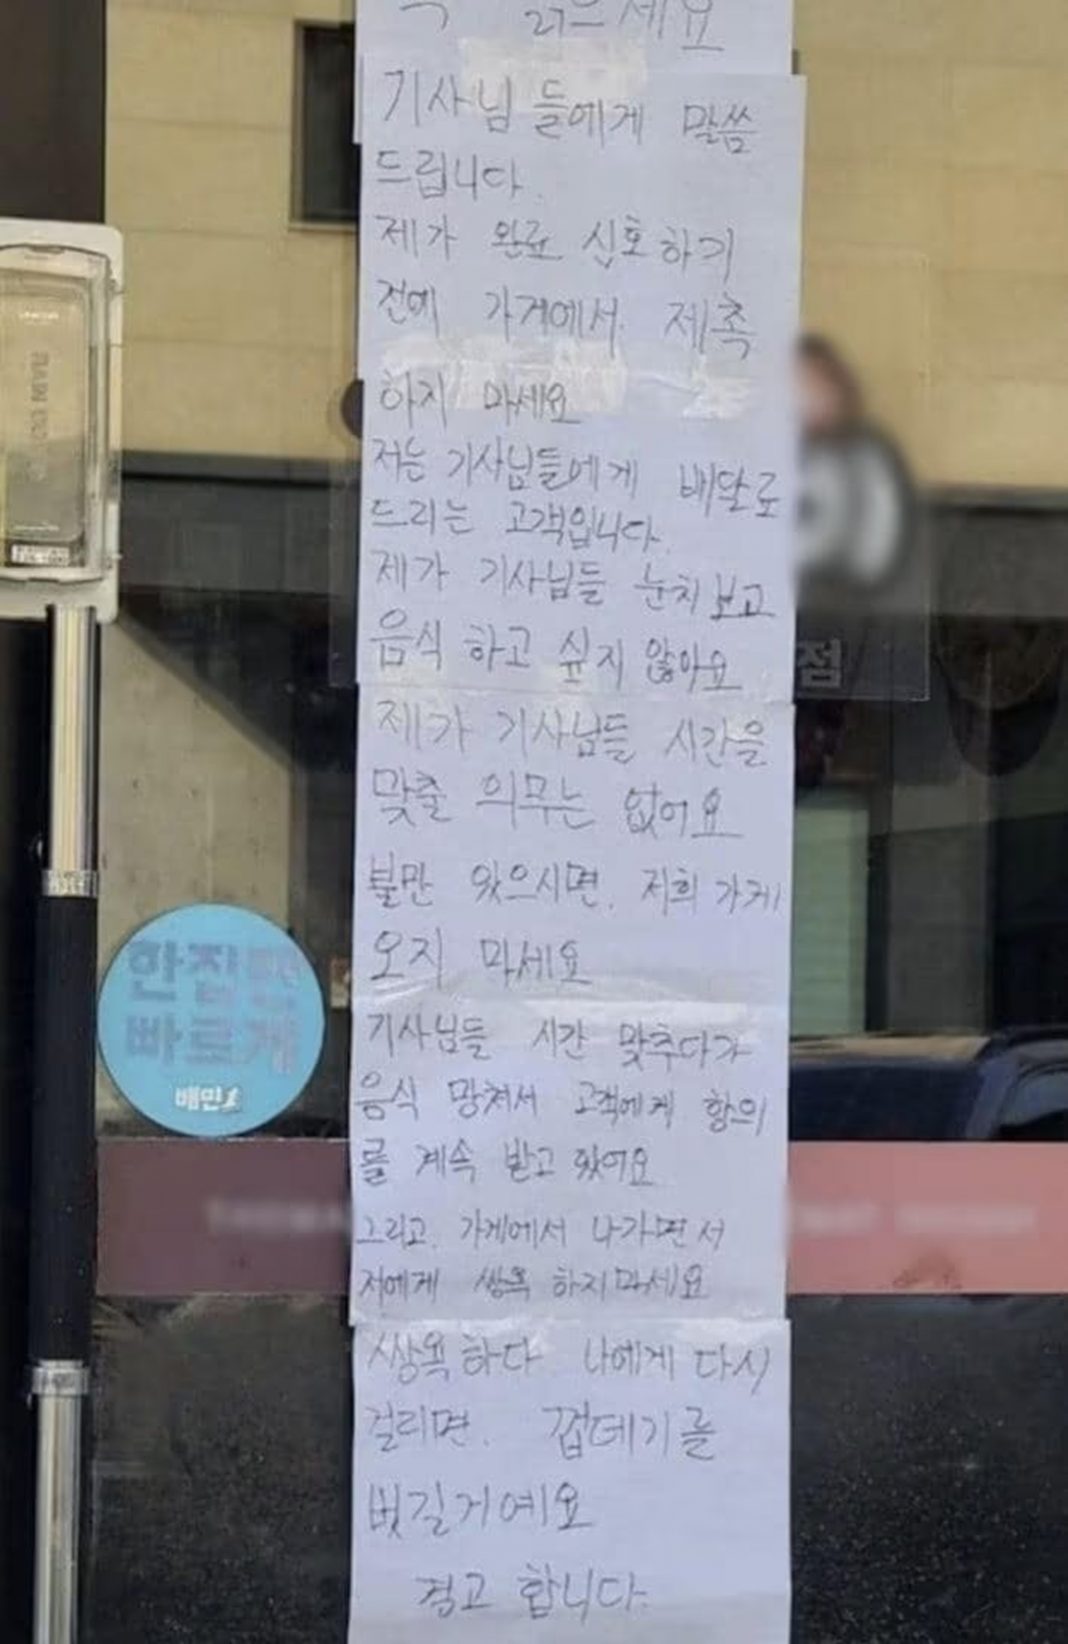 읽으세요
기사님들에게 말씀
드립니다.
제가 완료 신호하기
전에 가게에서 제촉
하지 마세요
저는 기사님들에게 배달료
드리는 고객입니다.
제가 기사님들 눈치 보고
음식 하고 싶지 않아요
점
제가 기사님들 시간을
맞출 의무는 없어요
불만 있으시면. 저희 가게
오지 마세요
한집만
빠르게
배민
기사님들 시간 맞추다가
음식 망쳐서 고객에게 항의
를 계속 받고 있어요
그리고. 가게에서 나가면서
저에게 쌍욕 하지마세요
쌍욕하다 나에게 다시
걸리면. 껍데기를
벗길거예요
경고 합니다.